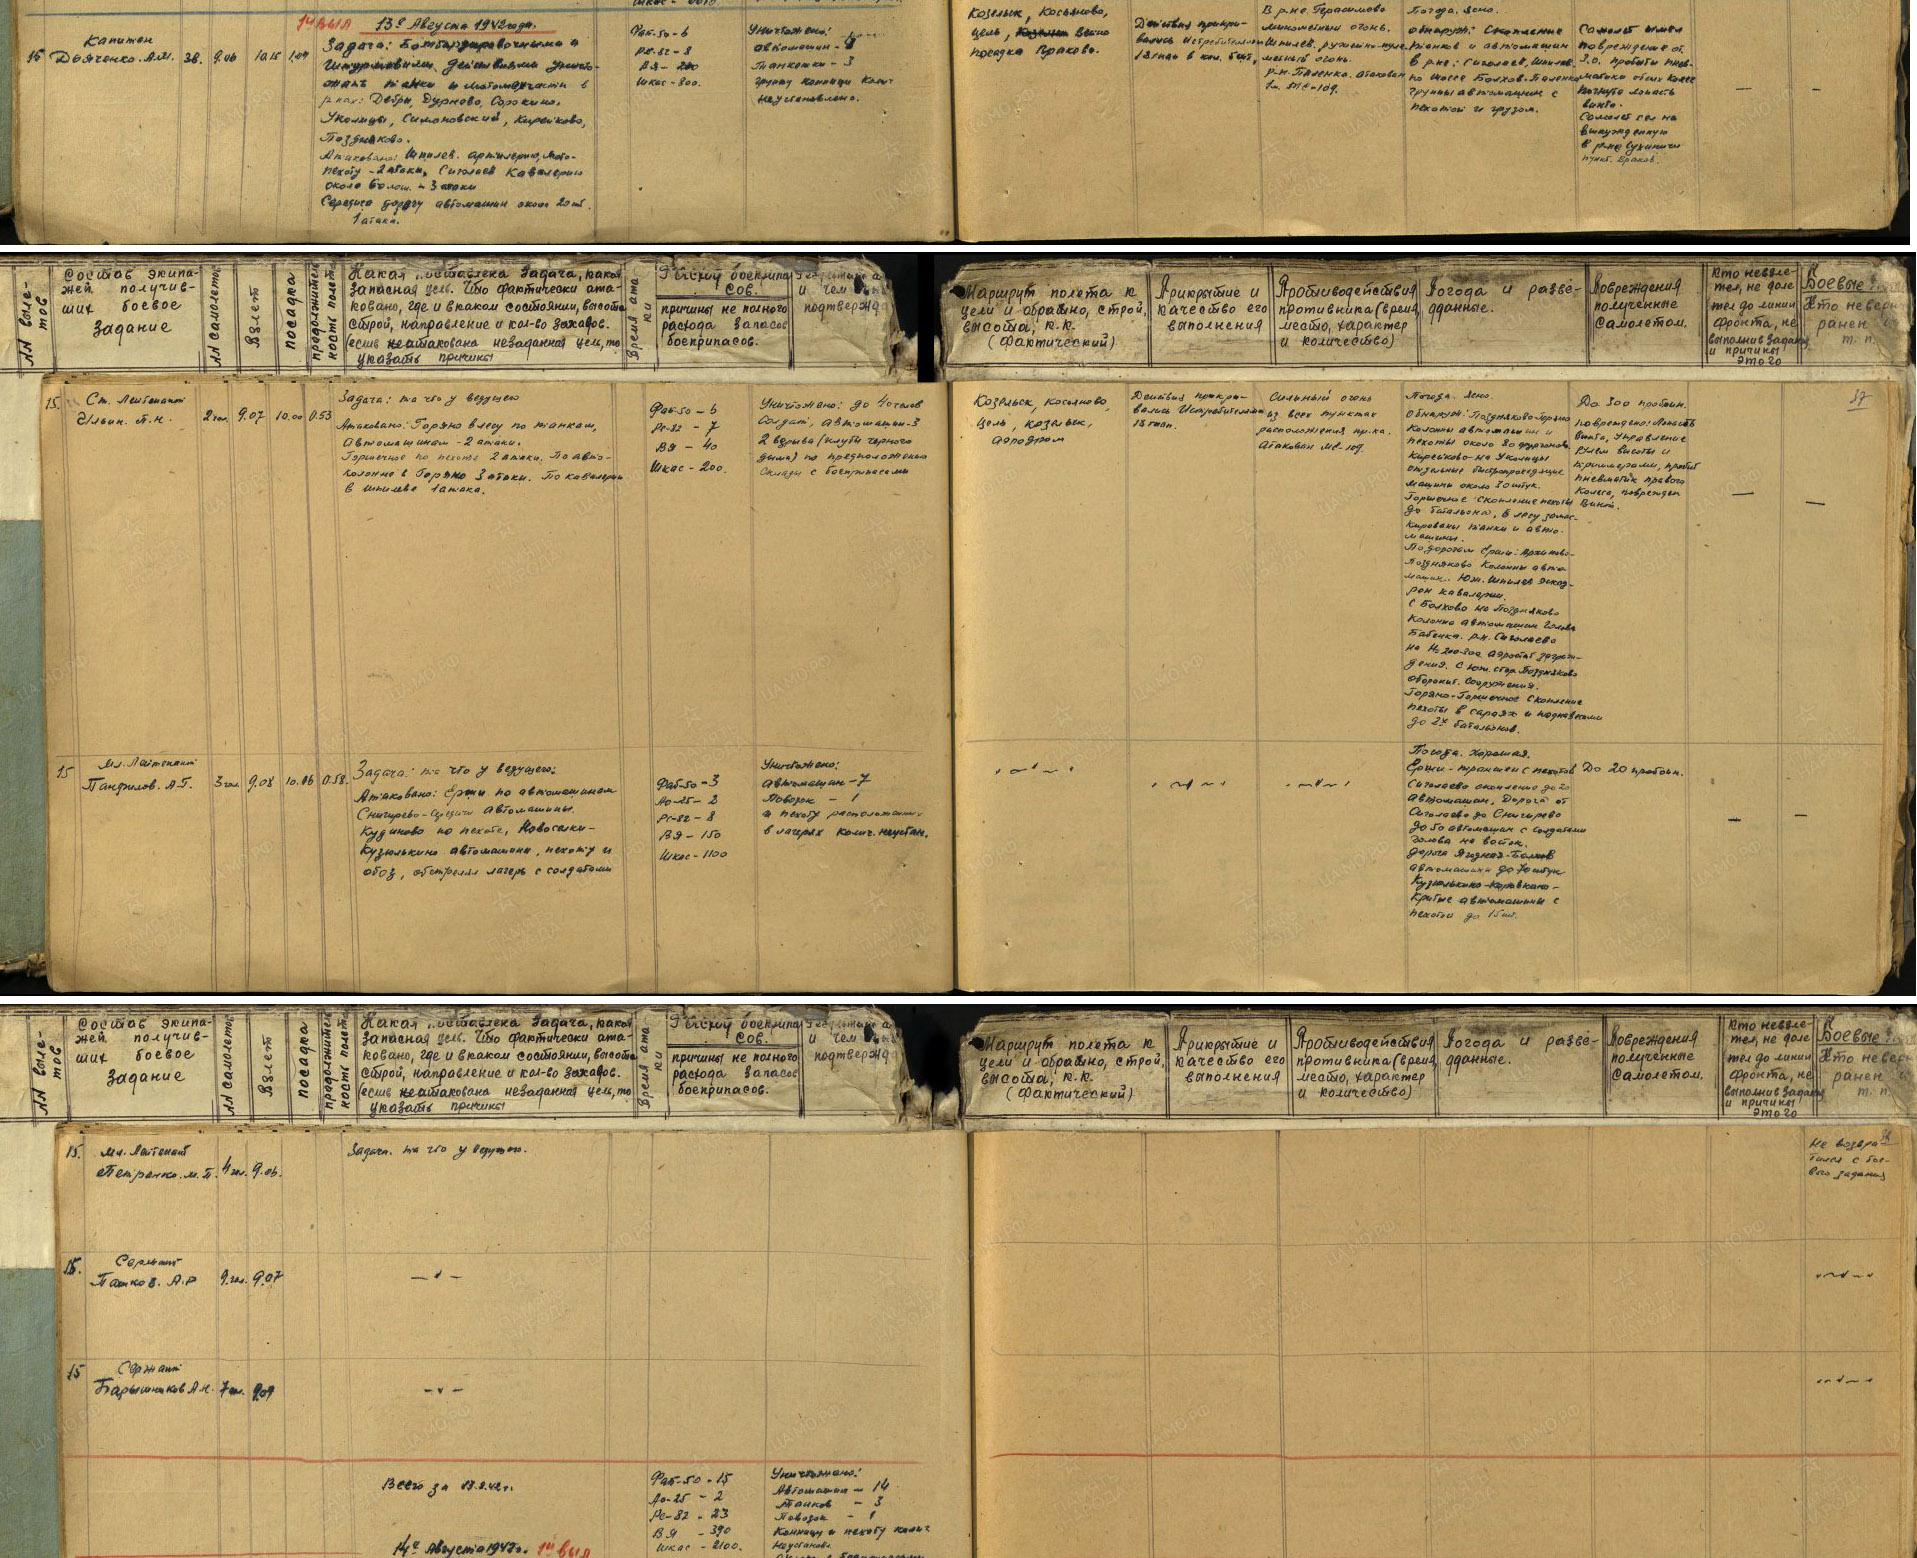 14 выл 13го Августа 1942 года.
15 Капитан
Дьяченко. А.М. 38. 9.06 10.15 1,09
Задача: Бомбардировочными и
штурмовыми действиями уничто-
жать танки и мотомехчасти в
р-нах: Дебри, Дурнево, Сорокино,
Уколицы, Симоновский, Кирейково,
Поздняково.
Атаковано: Шпилев. артилерию, мото-
пехоту - 2 атаки, Сиголаев Кавалерию
около - 3 атаки
Середичи дорогу автомашин около 20 шт.
1 атака.
Фаб-50-6
Рс-82-8
ВЯ-200
Шкас-800.
Уничтожено:
автомашин - 4
Танкетки - 3
группу конницы Колич
неустановлено.
Козельск, Косьяново,
цель,
посадка Браково.
Действия прикры-
вались Истребителями
В р-не. Герасимово
минометный огонь.
Шпилев. ружейно-пуле-
метный огонь.
р-н. Паленка. атакован
1м. МЕ-109.
Погода. Ясно.
обнаруж: Скопление
танков и автомашин
в р-не: Сиголаев, Шпилев.
по шоссе Болхов-Паленка
группы автомашин с
пехотой и грузом.
Самолет имел
повреждение от
З.О. пробиты пнев-
матики обеих колес
погнута лопасть
винта.
Самолет сел на
вынужденную
в р-не Сухиничи
пункт. Браков.
NN выле-
тов
Состав экипа-
жей получив-
ших боевое
задание
NN самолетов
Взлет
посадка
продолжитель
ность полета
Какая поставлена задача, какая
Запасная цель. Что фактически ата-
ковано, где и в каком состоянии, высота
Строй, направление и кол-во заходов.
(если не атакована незаданная цель, то
указать причины
Время ата-
ки
Расход боеприпа
сов.
причины не полного
расхода запасов
боеприпасов.
и чем
подтвержд
Маршрут полета к
цели и обратно, строй,
высота, к.к.
(Фактический)
Прикрытие и
качество его
выполнения
Противодействия
противника (время,
место, характер
и количество)
Погода и разве-
дданные.
Повреждения
полученные
самолетом.
Кто не взле-
тел, не доле-
тел до линии
фронта, не
выполнив задачу
и причины
этого
Боевые
Кто не верн
ранен и
т. п.
15. Ст. Лейтенант
Ильин. П.Н. 2 гол. 9.07 10.00 0.53
Задача: та что у ведущего
Атаковано: Горяно в лесу по танкам,
автомашинам - 2 атаки.
Горшечное по пехоте 2 атаки. По авто-
колонне в Горяно 3 атаки. По кавалерии
в Шпилеве 1 атака.
Фаб-50-6
Рс-82-7
ВЯ-40
Шкас-200.
Уничтожено: до 40 голов
Солдат, автомашин-3
2 взрыва (клубы черного
дыма) по предположению
склады с боеприпасами
Козельск, Косьяново,
Цель, Козельск,
аэродром
Действия прикры-
вались Истребителями
Сильный огонь
из всех пунктах
расположения пр-ка.
Атакован МЕ-109.
Погода. Ясно.
обнаруж: Поздняково-Горяно
Колонны автомашин и
пехоты около 30 фургонов
Кирейково-на Уколицы
отдельные быстропроходящие
машины около 30 штук.
Горшечное Скопление пехоты
до батальона. В лесу замас-
кированы танки и авто-
машины.
По дорогам Ержи: Архипово-
Поздняково Колонны авто-
машин. Юж. Шпилев эскад-
рон кавалерии.
С Болхово на Поздняково
Колонна автомашин Голова
Бабенка. р.н. Сиголаево
на Н=200-300 аэростат заграж-
дения. С юж. стор. Поздняково
оборонит. Сооружения.
Горяно-Горшечное Скопление
пехоты в сараях и под навесами
до 2х батальонов.
До 300 пробоин.
повреждено: Лопасть
Винта, Управление
Рулем высоты и
триммерами, пробит
пневматик правого
Колеса, поврежден
Винт.
87
15 Мл. Лейтенант
Панфилов. А.Г. 3 гол 9.08 10.06 0.58.
Задача: та что у ведущего:
Атаковано: Ержи по автомашинам
Снигирево-Середичи автомашины.
Кудиново по пехоте, Новоселки-
Кузюлькино автомашины, пехоту и
обоз, обстрелял лагерь с солдатами
Фаб-50-3
Ао-25-2
Рс-82-8
ВЯ-150
Шкас-1100
Уничтожено:
автомашин-7
Повозок - 1
и пехоту расположенную
в лагерях колич. неустан.
Погода. хорошая.
Ержи-траншеи с пехотой
Сиголаево скопление до 20
автомашин. Дорога от
Сиголаево до Снигирево
до 60 автомашин с солдатами
Голова на восток.
Дорога Ягодная-Болхов
автомашин до 70 штук
Кузюлькино-Коровкино-
Крытые автомашины с
пехотой до 15 шт.
До 20 пробоин.
NN выле-
тов
Состав экипа-
жей получив-
ших боевое
задание
NN самолетов
Взлет
посадка
продолжитель
ность полета
Какая поставлена задача, какая
Запасная цель. Что фактически ата-
ковано, где и в каком состоянии, высота
Строй, направление и кол-во заходов.
(если не атакована незаданная цель, то
указать причины
Время ата-
ки
Расход боеприпа
сов.
причины не полного
расхода запасов
боеприпасов.
и чем
подтвержд
Маршрут полета к
цели и обратно, строй,
высота, к.к.
(Фактический)
Прикрытие и
качество его
выполнения
Противодействия
противника (время,
место, характер
и количество)
Погода и разве-
дданные.
Повреждения
полученные
самолетом.
Кто не взле-
тел, не доле-
тел до линии
фронта, не
выполнив задачу
и причины
этого
Боевые
Кто не верн
ранен и
т. п.
15. Мл. Лейтенант
Петренко. М.П. 4 гол. 9.06.
Задача. та что у ведущего.
Не возвра-
тился с бое-
вого задания
15. Сержант
Пашков. А.Р 9 гол. 9.07
15 Сержант
Барышников А.И. 7 гол. 9.09
Всего за 13.8.42 г.
Фаб-50-15
Ао-25-2
Рс-82-23
ВЯ-390
Шкас-2100.
Уничтожено:
Автомашин - 14
Танков - 3
Повозок - 1
Конницу и пехоту колич
Неустановл.
14го Августа 1942 г. 1й выл